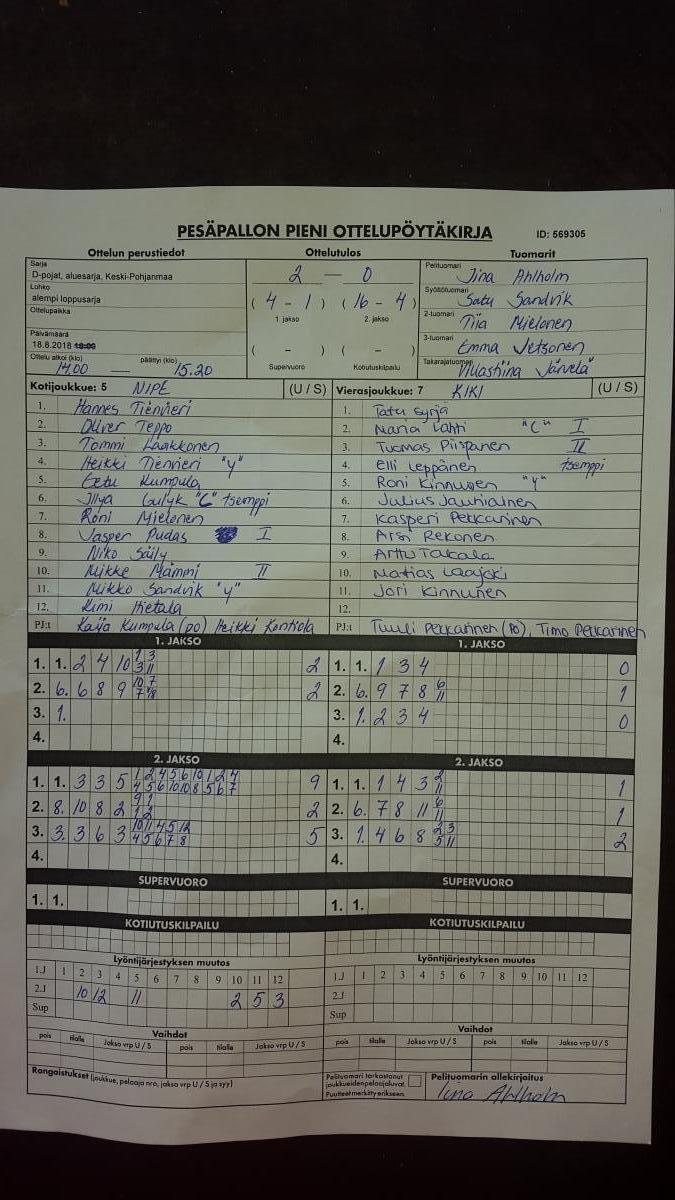 PESÄPALLON PIENI OTTELUPÖYTÄKIRJA ID: 569305
Ottelun perustiedot Ottelutulos Tuomarit
Sarja
D-pojat, aluesarja, Keski-Pohjanmaa
Lohko
alempi loppusarja
Ottelupaikka
Päivämäärä
18.8.2018 18:00
Ottelu alkoi (klo) päättyi (klo)
14.00 — 15.20
2 — 0
( 4 - 1 ) ( 16 - 4 )
1. jakso 2. jakso
( - ) ( - )
Supervuoro Kotiutuskilpailu
Pelituomari Iina Ahlholm
Syöttötuomari Satu Sandvik
2-tuomari Tiia Mielonen
3-tuomari Emma Vetsonen
Takarajatuomari Järvelä
Kotijoukkue: 5 NIPE (U / S)
1. Hannes Tienvieri
2. Oliver Teppo
3. Tommi Laakkonen
4. Heikki Tienvieri "y"
5. Eetu Kumpula
6. Illya Gulyk "C" tsemppi
7. Roni Mielonen
8. Jasper Pudas I
9. Niko Säily
10. Mikke Mämmi II
11. Mikko Sandvik "y"
12. Kimi Hietala
PJ:t Kaija Kumpula (PO) Heikki Kontiola
Vierasjoukkue: 7 KIKI (U / S)
1. Tatu Syrjä
2. Nana Lahti "C" I
3. Tuomas Piispanen II
4. Elli Leppänen tsemppi
5. Roni Kinnunen "y"
6. Julius Jauhiainen
7. Kasperi Pekkarinen
8. Arsi Rekonen
9. Arttu Takala
10. Matias Laajski
11. Jori Kinnunen
12.
PJ:t Tuuli Pekkarinen (PO), Timo Pekkarinen
1. JAKSO
1. 1. 2 4 10 1 3 2
3 11
2. 6. 6 8 9 10 7 2
3. 1.
4.
2. JAKSO
1. 1. 3 3 5 1 2 4 5 6 10 1 2 4 9
4 5 6 10 10 8 5 6 7
2. 8. 10 8 2 9 1 2
1 2
3. 3. 3 6 3 10 11 4 5 12 5
4 5 6 7 8
4.
SUPERVUORO
1. 1.
KOTIUTUSKILPAILU
1. JAKSO
1. 1. 1 3 4 0
2. 6. 9 7 8 6 1
11
3. 1. 2 3 4 0
4.
2. JAKSO
1. 1. 1 4 3 2 1
11
2. 6. 7 8 11 6 1
11
3. 1. 4 6 8 2 3 2
5 11
4.
SUPERVUORO
1. 1.
KOTIUTUSKILPAILU
Lyöntijärjestyksen muutos
1.J 1 2 3 4 5 6 7 8 9 10 11 12
2.J 10 12 11 2 5 3
Sup
Vaihdot
pois tilalle Jakso vrp U / S pois tilalle Jakso vrp U / S
Lyöntijärjestyksen muutos
1.J 1 2 3 4 5 6 7 8 9 10 11 12
2.J
Sup
Vaihdot
pois tilalle Jakso vrp U / S pois tilalle Jakso vrp U / S
Rangaistukset (joukkue, pelaaja nro, jakso vrp U / S ja syy)
Pelituomari tarkastanut
joukkueiden pelaajaluvat.
Puutteet merkitty erikseen.
Pelituomarin allekirjoitus
Iina Ahlholm